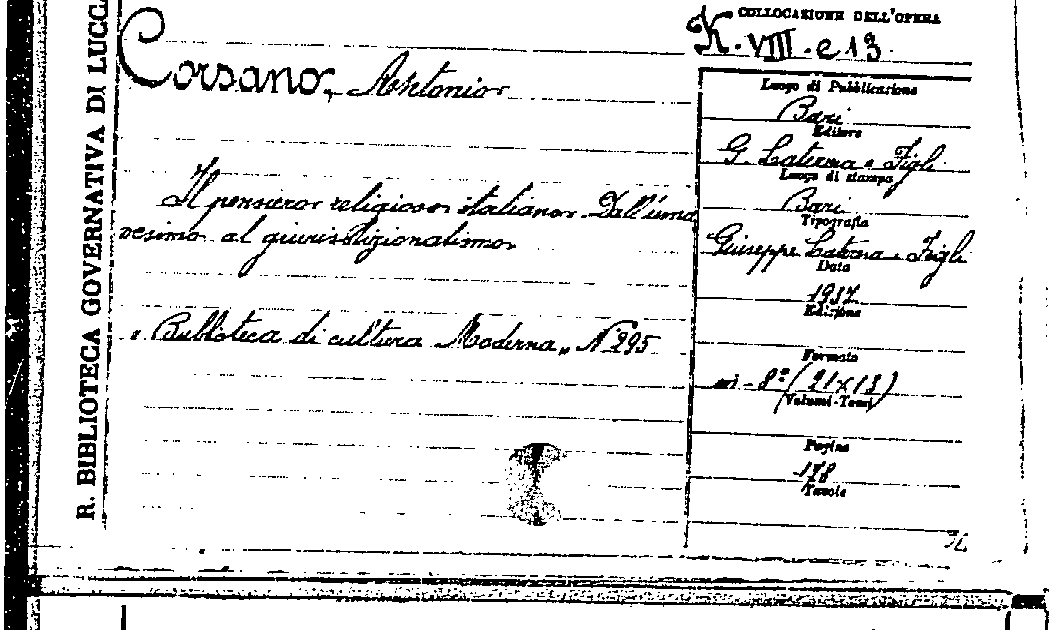 R. BIBLIOTECA GOVERNATIVA DI LUCCA
COLLOCAZIONE DELL'OPERA
K. VIII. e 13.
Corsano, Antonio
Il pensiero religioso italiano. Dall'uma
nesimo al giurisdizionalismo
"Biblioteca di cultura Moderna„ N 295
Luogo di Pubblicazione
Bari
Editore
G. Laterza e Figli
Luogo di stampa
Bari
Tipografia
Giuseppe Laterza e Figli
Data
1937
Edizione
Formato
in - 8º (21x13)
Volumi-Tomi
Pagine
178
Tavole